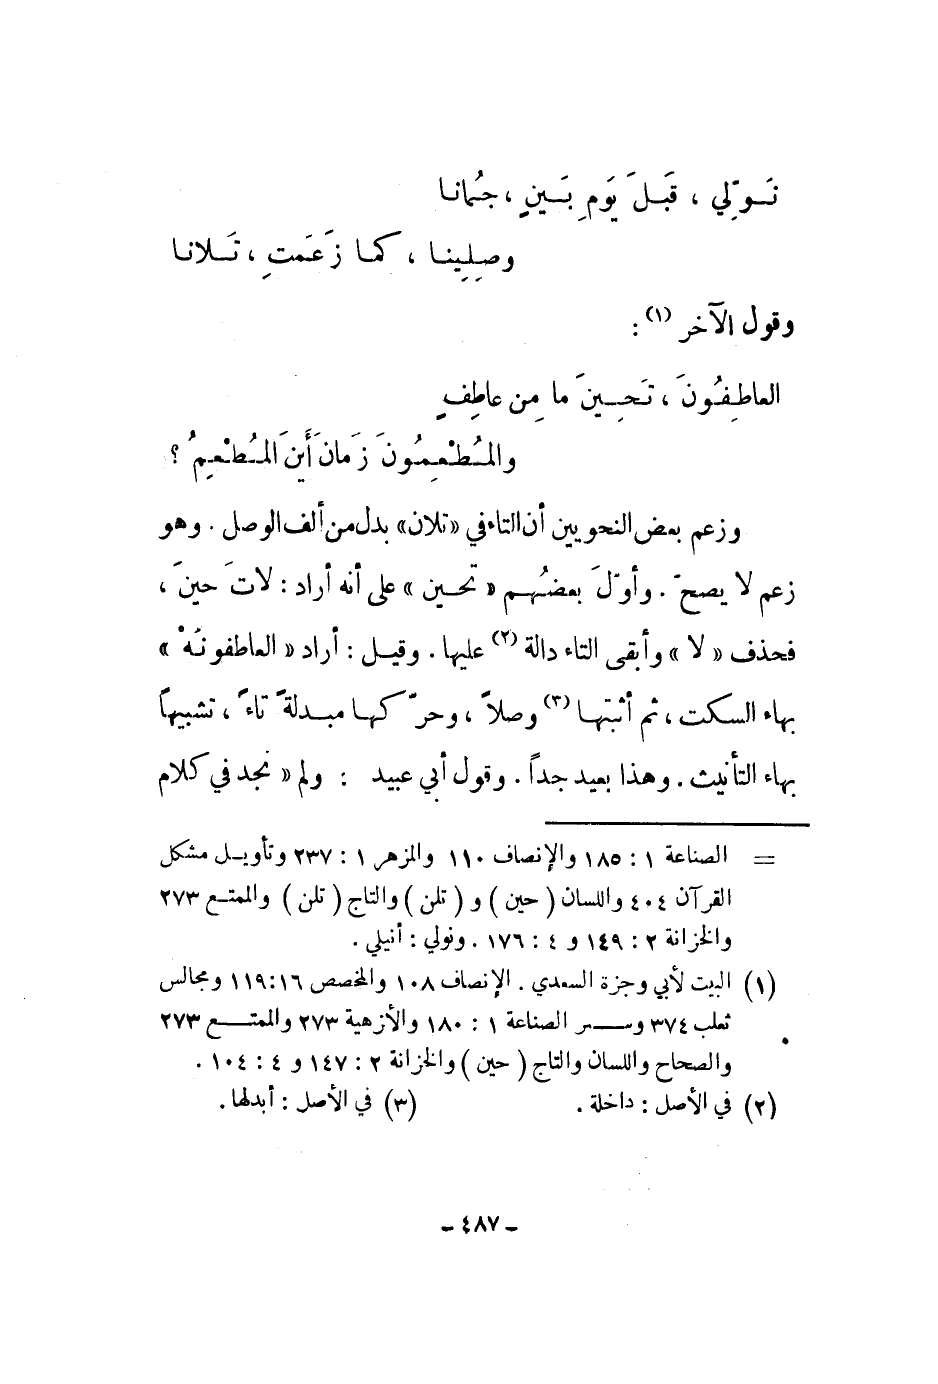 نَوِّلي ، قَبلَ يَومِ بَينٍ ، جُمانا
وصِلِينا ، كما زَعَمتِ ، تَلانا
وقول الآخر (١) :
العاطِفُونَ ، تَحِينَ ما مِن عاطِفٍ
والمُطْعِمُونَ زَمانَ أَينَ المُطْعِمُ ؟
وزعم بعض النحويين أن التاء في «تلان» بدل من ألف الوصل . وهو
زعم لا يصحّ . وأوّلَ بعضُهم « تحين » على أنه أراد : لاتَ حينَ ،
فحذف « لا » وأبقى التاء دالة (٢) عليها . وقيل : أراد « العاطفونَهْ »
بهاء السكت ، ثم أثبتها (٣) وصلاً ، وحرّكها مبدلةً تاءً ، تشبيهاً
بهاء التأنيث . وهذا بعيد جداً . وقول أبي عبيد : ولم « نجد في كلام
= الصناعة ١ : ١٨٥ والإنصاف ١١٠ والمزهر ١ : ٢٣٧ وتأويل مشكل
القرآن ٤٠٤ واللسان ( حين ) و ( تلن ) والتاج ( تلن ) والممتع ٢٧٣
والخزانة ٢ : ١٤٩ و ٤ : ١٧٦ . ونولي : أنيلي .
(١) البيت لأبي وجزة السعدي . الإنصاف ١٠٨ والمخصص ١٦:١١٩ ومجالس
ثعلب ٣٧٤ وسر الصناعة ١ : ١٨٠ والأزهية ٢٧٣ والممتع ٢٧٣
والصحاح واللسان والتاج ( حين ) والخزانة ٢ : ١٤٧ و ٤ : ١٠٤ .
(٢) في الأصل : داخلة . (٣) في الأصل : أبدلها .
- ٤٨٧ -